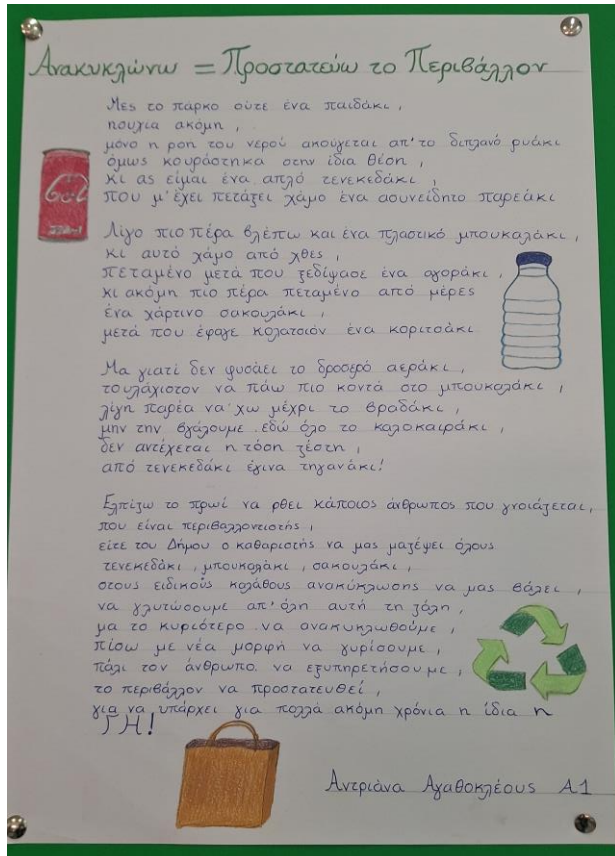 Ανακυκλώνω = Προστατεύω το Περιβάλλον
Μες το πάρκο ούτε ένα παιδάκι,
πουλιά ακόμη,
μόνο η ροή του νερού ακούγεται απ'το διπλανό ρυάκι
όμως κουράστηκα στην ίδια θέση,
κι ας είμαι ένα απλό τενεκεδάκι,
που μ'έχει πετάξει χάμο ένα ασυνείδητο παρεάκι
Λίγο πιο πέρα βλέπω και ένα πλαστικό μπουκαλάκι,
κι αυτό χάμο από χθες,
πεταμένο μετά που ξεδίψασε ένα αγοράκι,
κι ακόμη πιο πέρα πεταμένο από μέρες
ένα χάρτινο σακουλάκι,
μετά που έφαγε κολατσιόν ένα κοριτσάκι
Μα γιατί δεν φυσάει το δροσερό αεράκι,
τουλάχιστον να πάω πιο κοντά στο μπουκαλάκι,
λίγη παρέα να'χω μέχρι το βραδάκι,
μην την βγάλουμε εδώ όλο το καλοκαιράκι,
δεν αντέχεται η τόση ζέστη,
από τενεκεδάκι έγινα τηγανάκι!
Ελπίζω το πρωί να ρθει κάποιος άνθρωπος που γνοιάζεται,
που είναι περιβαλλοντιστής,
είτε του Δήμου ο καθαριστής να μας μαζέψει όλους
τενεκεδάκι, μπουκαλάκι, σακουλάκι,
στους ειδικούς καλάθους ανακύκλωσης να μας βάλει,
να γλυτώσουμε απ'όλη αυτή τη ζάλη,
μα το κυριότερο να ανακυκλωθούμε,
πίσω με νέα μορφή να γυρίσουμε,
πάλι τον άνθρωπο να εξυπηρετήσουμε,
το περιβάλλον να προστατευθεί,
για να υπάρχει για πολλά ακόμη χρόνια η ίδια η
ΓΗ!
Αντριάνα Αγαθοκλέους Α1